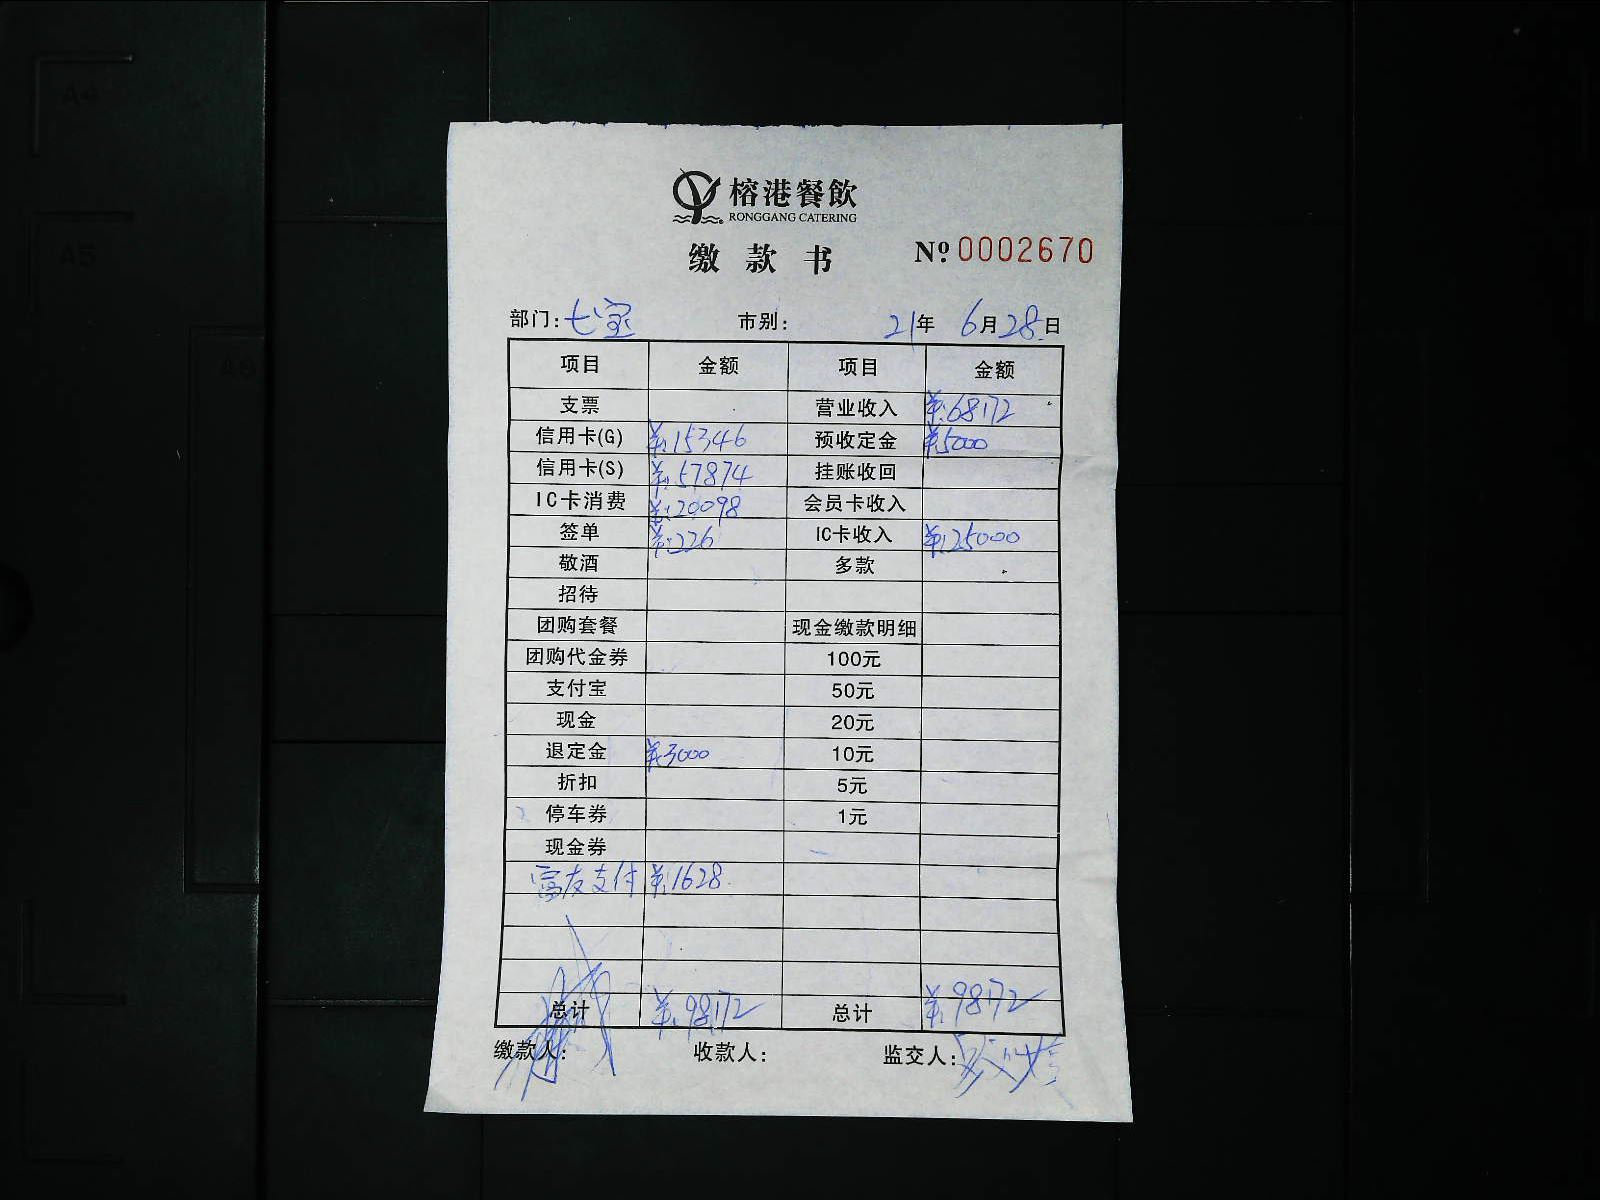 榕港餐飲
RONGGANG CATERING
缴款书 Nº 0002670
部门：七宝 市别： 21年 6月28日
项目 金额 项目 金额
支票 营业收入 ¥:68172
信用卡(G) ¥:15346 预收定金 ¥5000
信用卡(S) ¥:57874 挂账收回
IC卡消费 ¥:20098 会员卡收入
签单 ¥:226 IC卡收入 ¥:25000
敬酒 多款
招待
团购套餐 现金缴款明细
团购代金券 100元
支付宝 50元
现金 20元
退定金 ¥3000 10元
折扣 5元
停车券 1元
现金券
富友支付 ¥:1628
总计 ¥:98172 总计 ¥:98172
缴款人： 收款人： 监交人：
A4
A5
A6